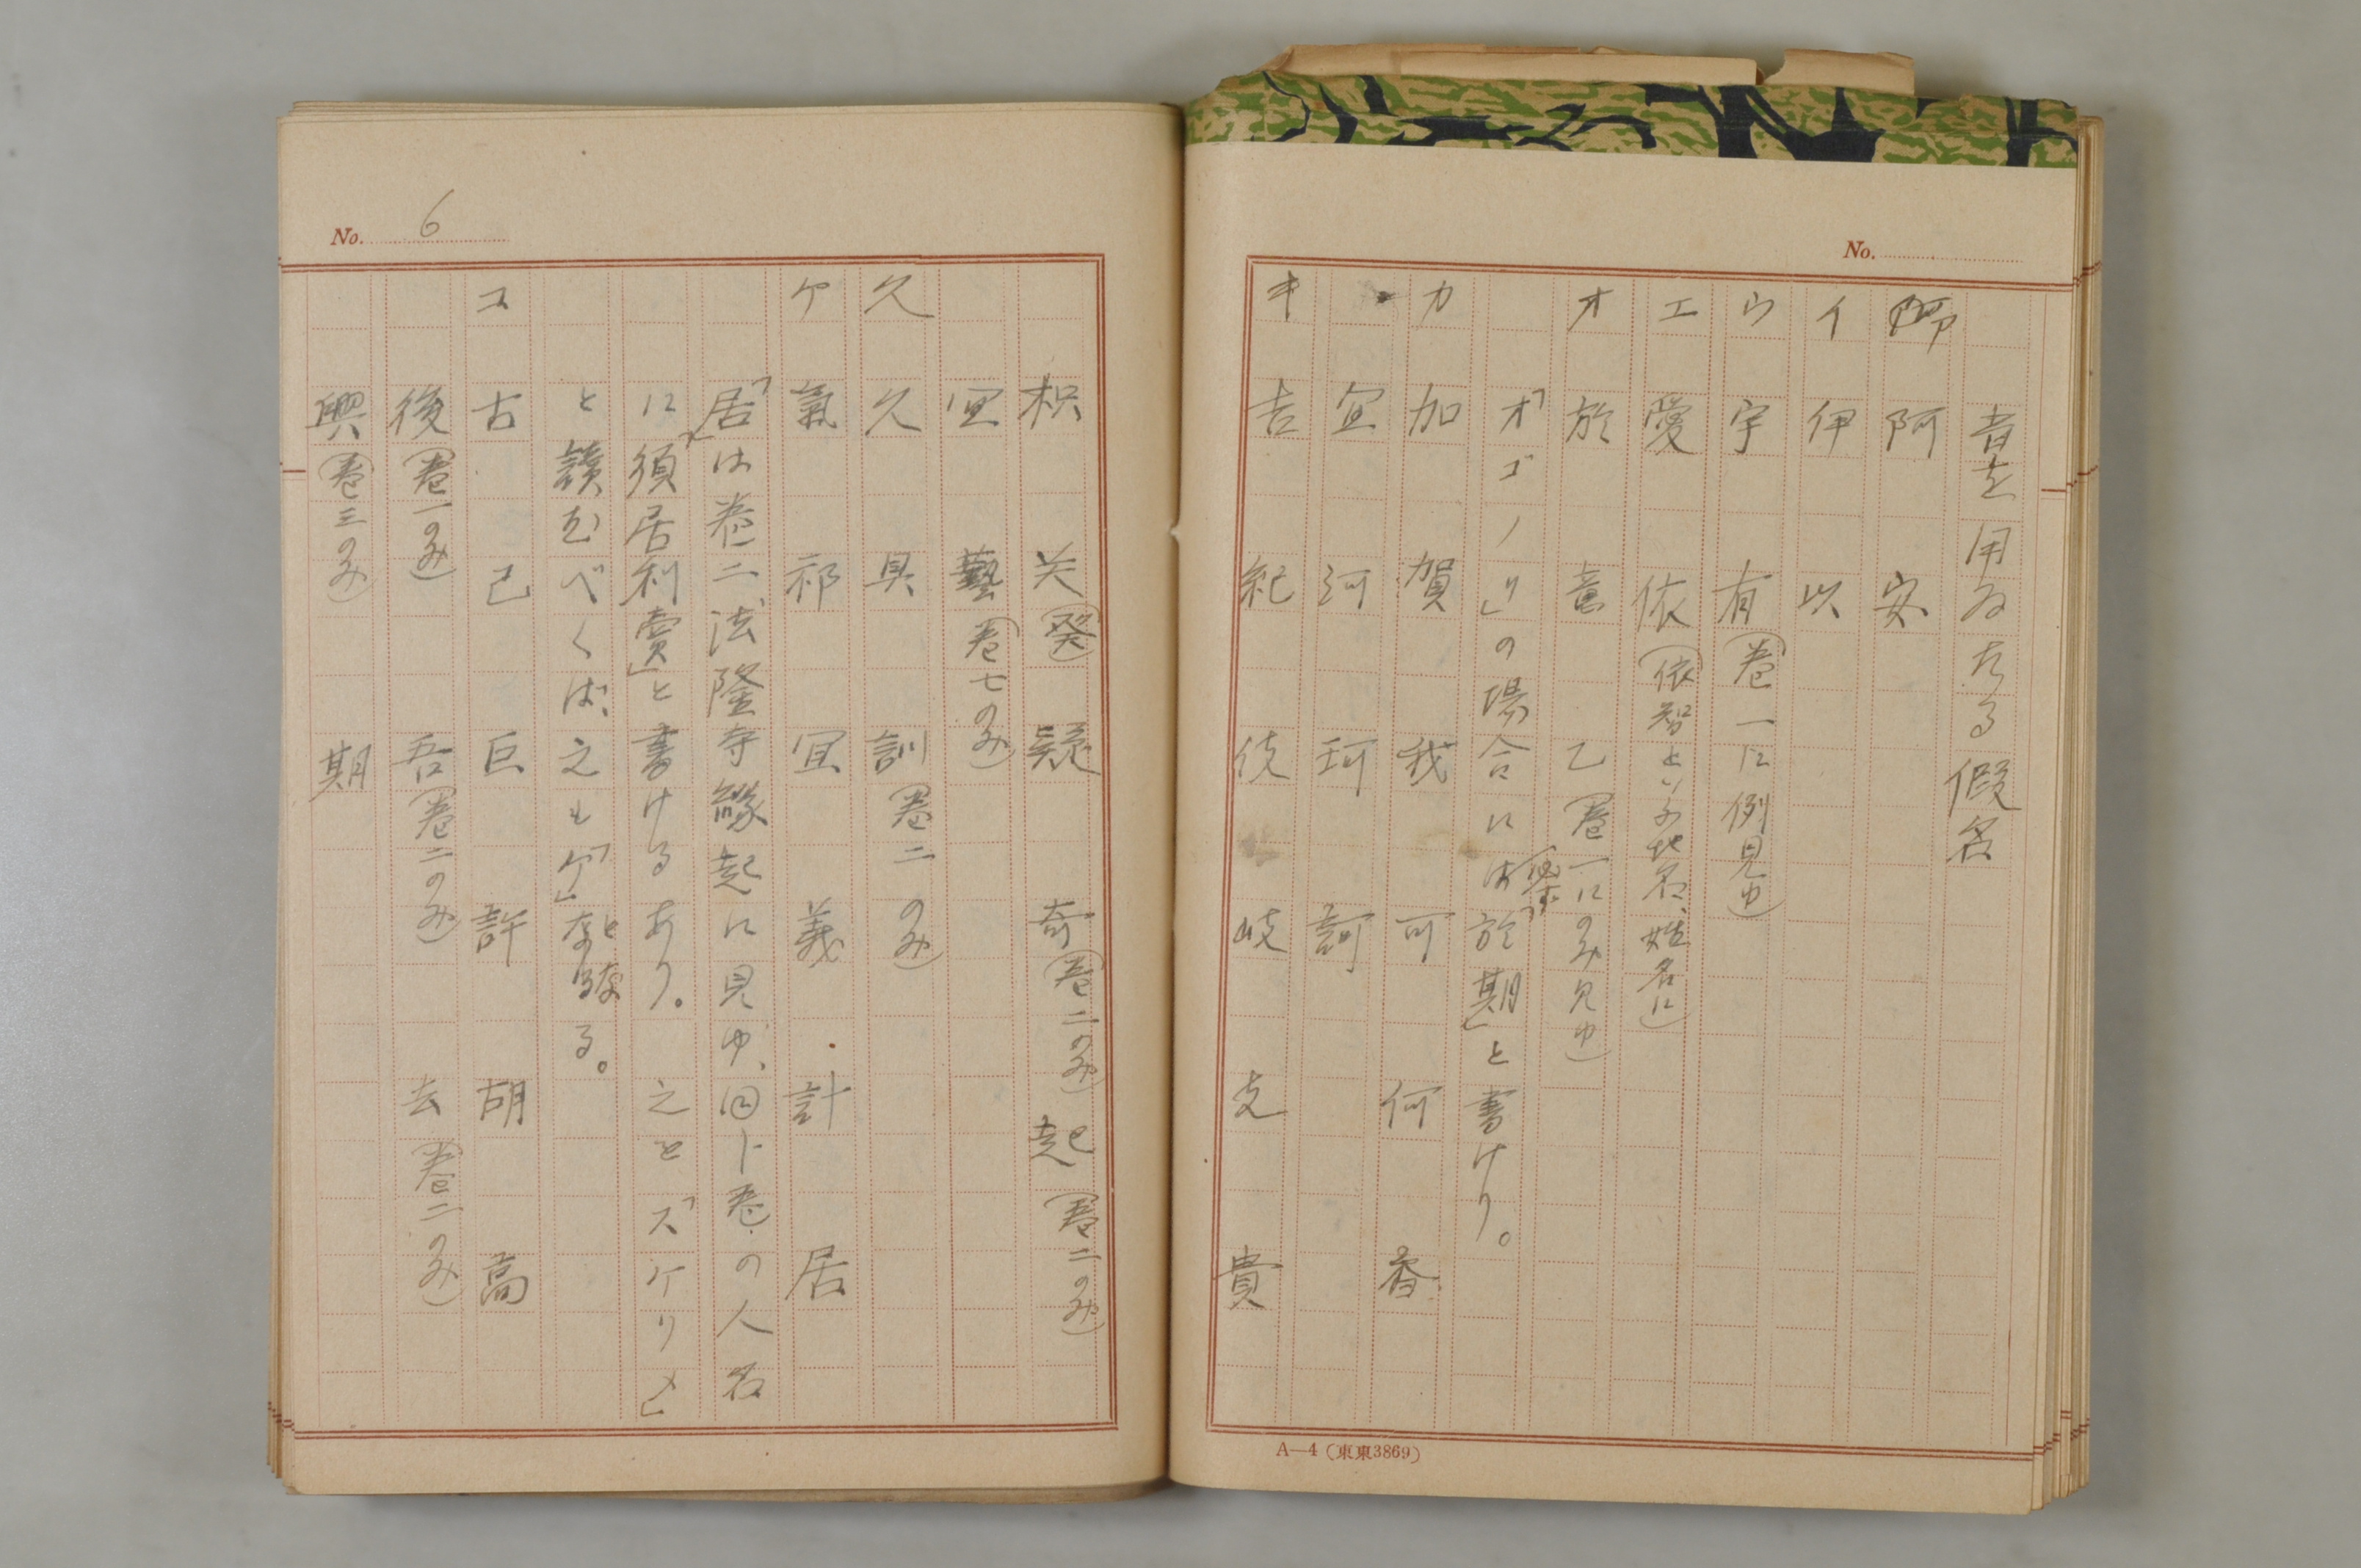 No.
音を用ゐたる假名
ア 阿 安
イ 伊 以
ウ 宇 有(卷一に例見ゆ)
エ 愛 依(依智といふ地名、姓名に)
オ 於 意 乙(卷一にのみ見ゆ)
「オゴノリ」の場合には必ず「於期」と書けり。
カ 加 賀 我 可 何 香
宜 河 珂 訶
キ 吉 紀 伎 岐 支 貴
A—4(東東3869)
No. 6
枳 癸(癸) 疑 奇(卷二のみ) 起(卷二のみ)
宜 藝(卷七のみ)
久 久 具 訓(卷二のみ)
ケ 氣 祁 宜 義 計 居
「居」は卷二、法隆寺緣起に見ゆ、同卜卷の人名
に「須居利賣」と書けるあり。之を「ズケリメ」
と讀むべくば、之も「ケ」となる。
コ 古 己 巨 許 胡 高
後(卷一のみ) 吾(卷二のみ) 去(卷二のみ)
興(卷三のみ) 期